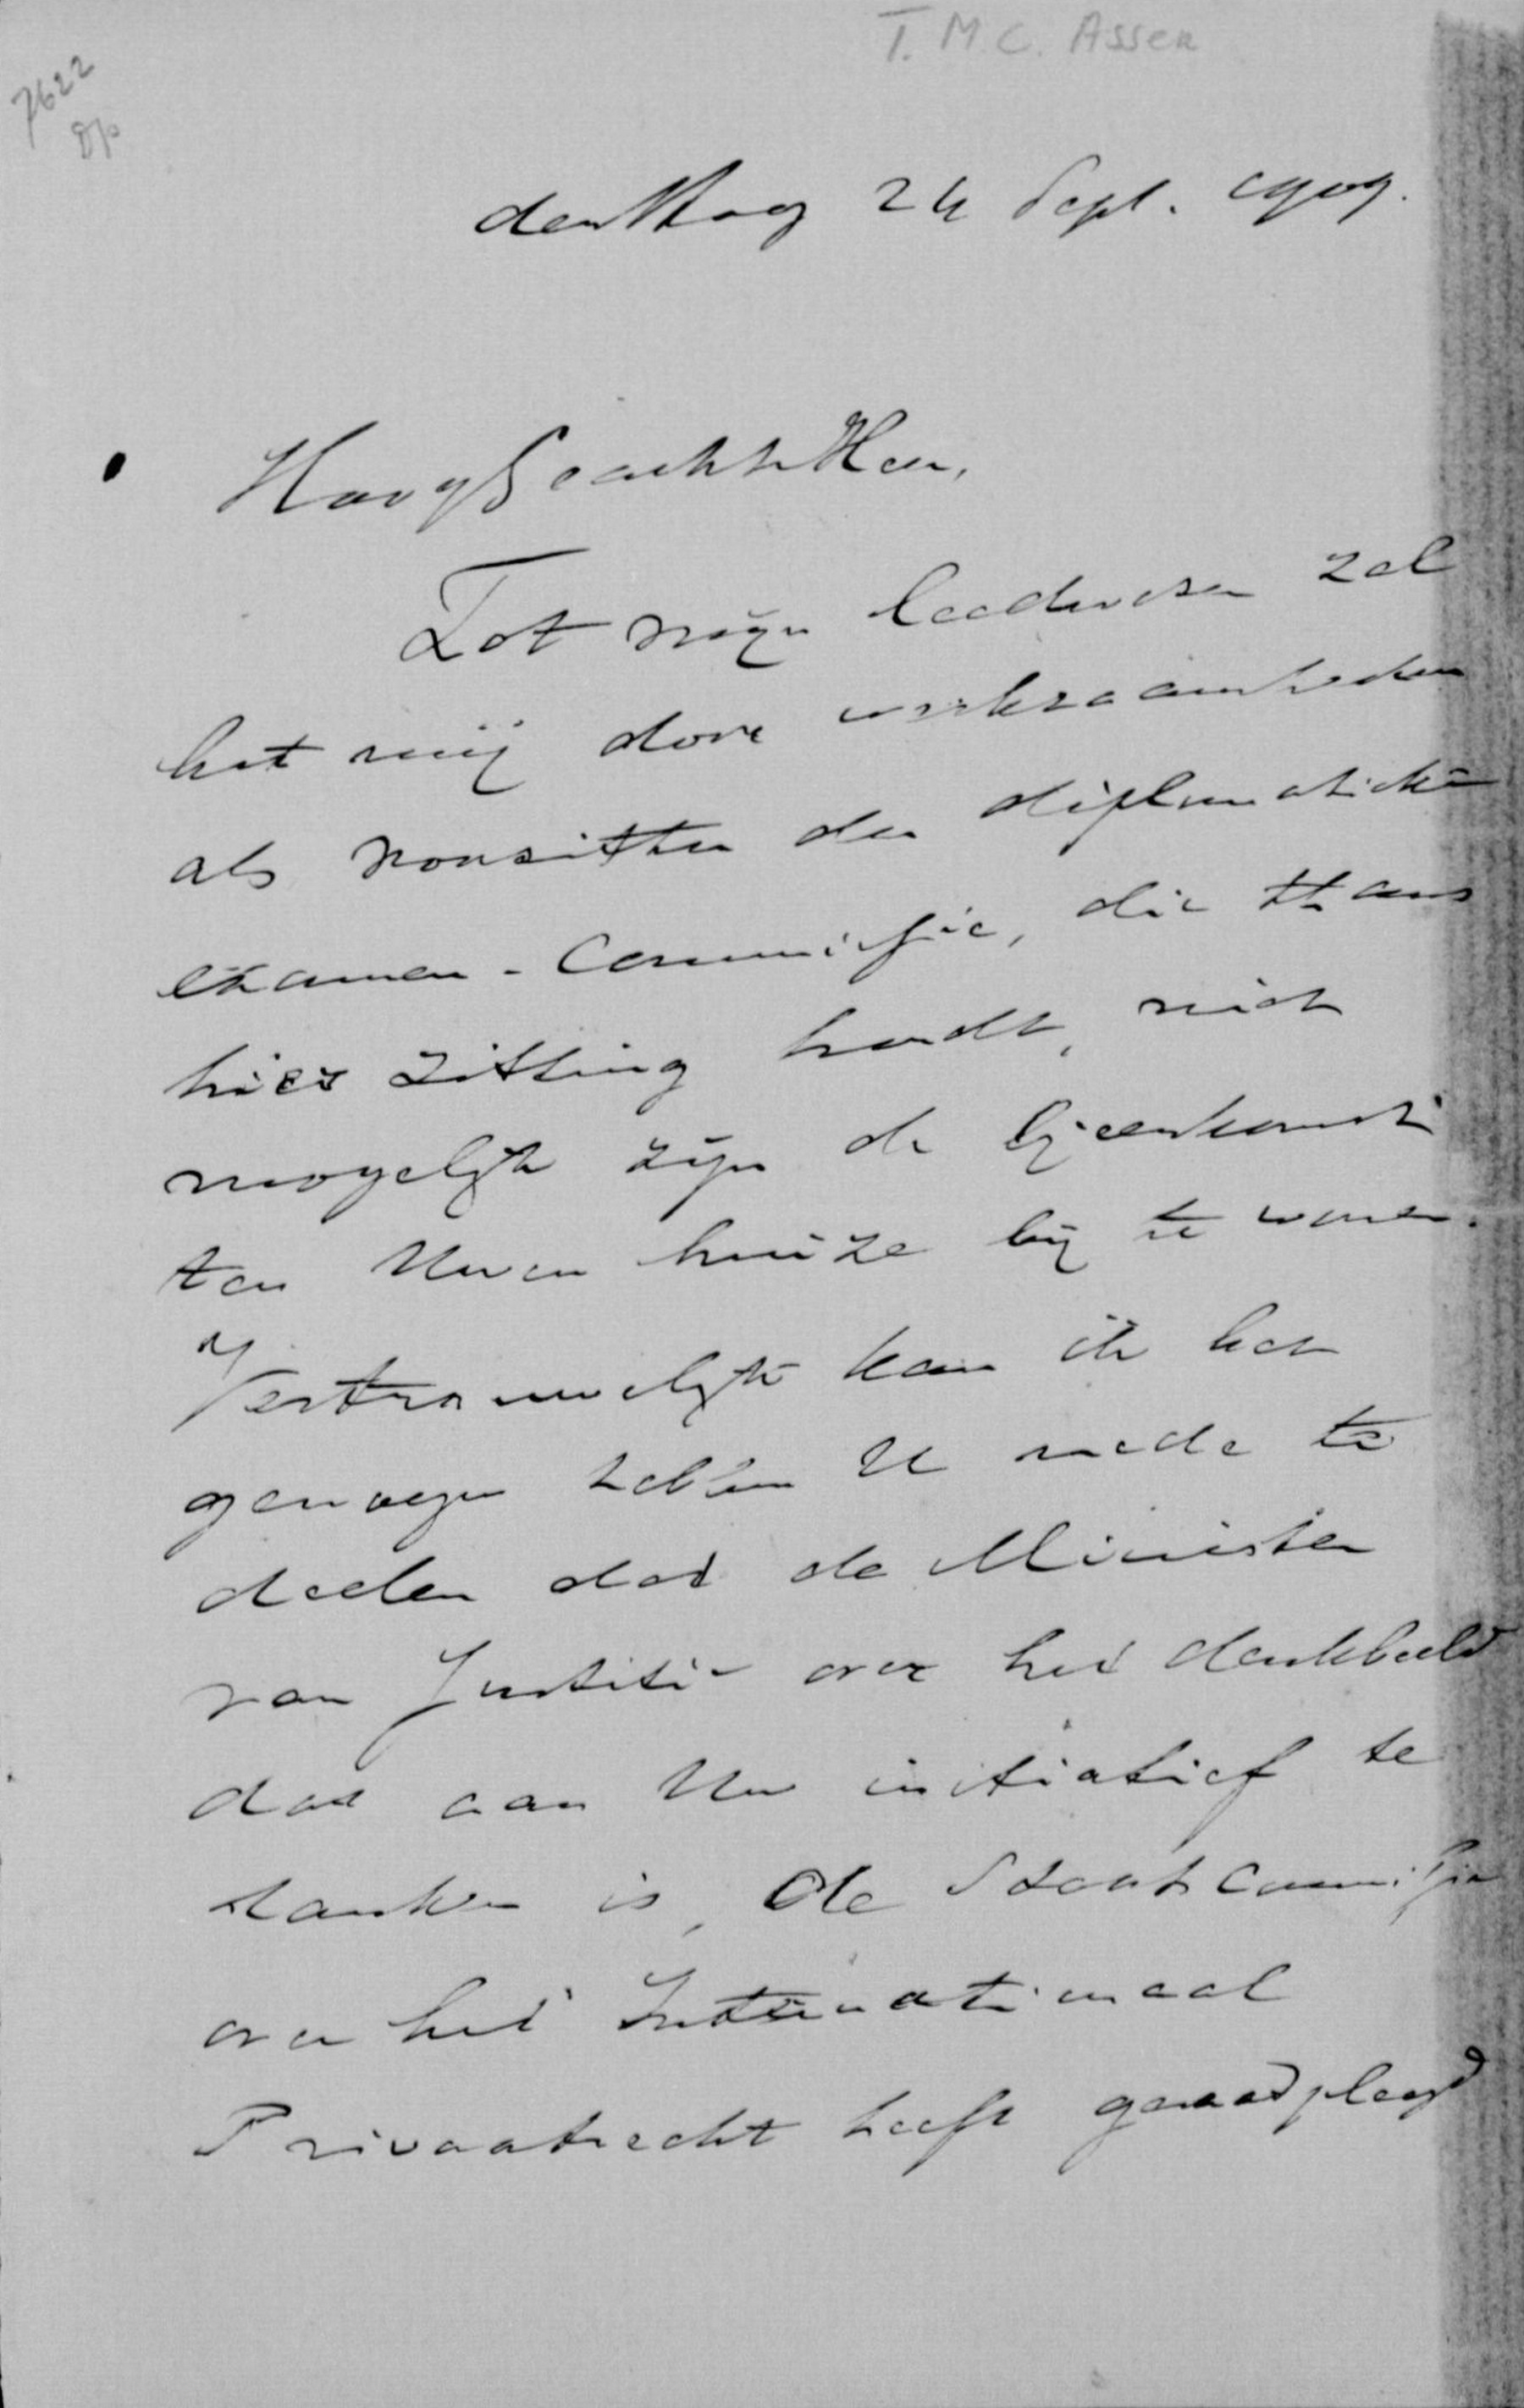 T. M. C. Asser
7622
den Haag 24 Sept. 1909.
HoogGeachte Heer,
Tot mijn leedwezen zal
het mij door werkzaamheden
als voorzitter der diplomatieke
examen-Commissie, die thans
hier zitting houdt, niet
mogelijk zijn de bijeenkomst
ten Uwen huize bij te wonen.
Vertrouwelijk kan ik het
genoegen hebben U mede te
deelen dat de Minister
van Justitie over het denkbeeld
dat aan Uw initiatief te
danken is, de Staatscommissie
over het Internationaal
Privaatrecht heeft geraadpleegd